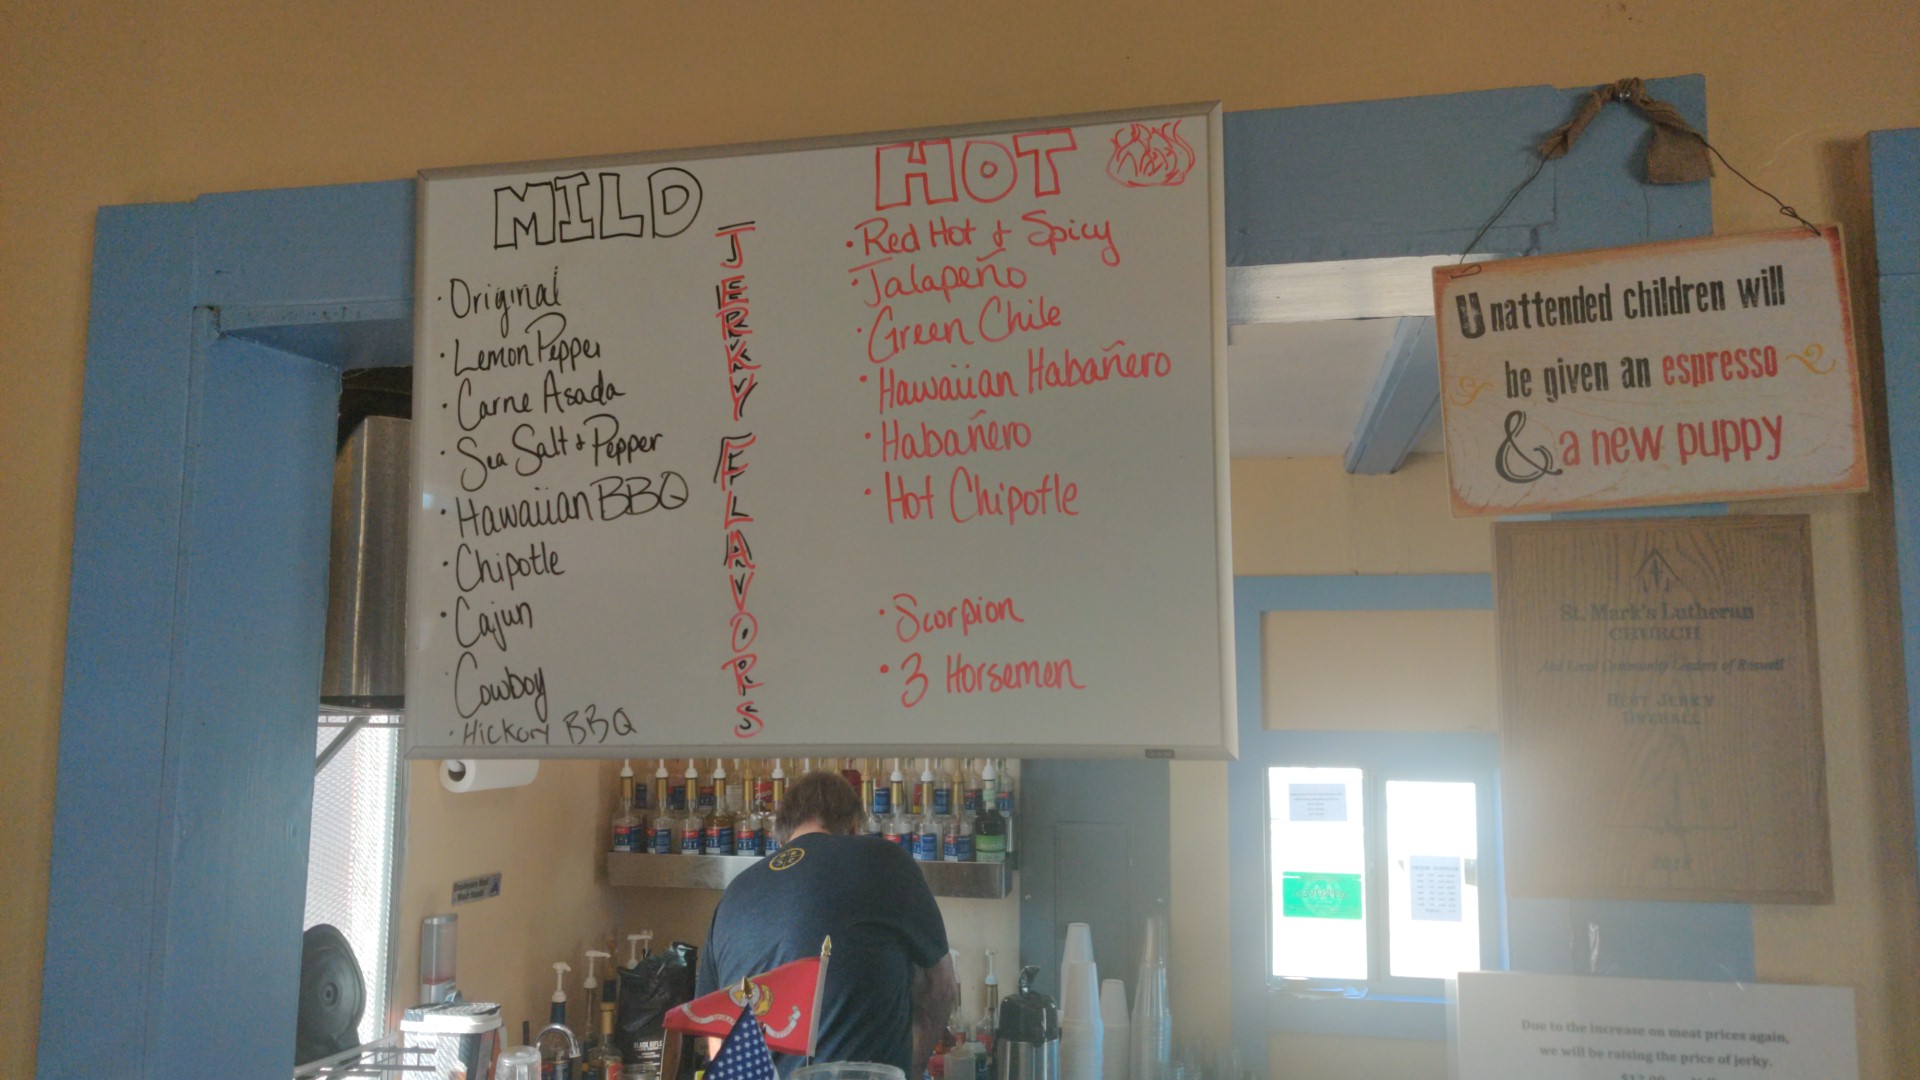 MILD
· Original
· Lemon Pepper
· Carne Asada
· Sea Salt & Pepper
· Hawaiian BBQ
· Chipotle
· Cajun
Cowboy
· Hickory BBQ
JERKY FLAVORS
HOT
· Red Hot & Spicy
· Jalapeño
· Green Chile
· Hawaiian Habañero
· Habañero
· Hot Chipotle
· Scorpion
· 3 Horsemen
Unattended children will
be given an espresso
& a new puppy
St. Mark's Lutheran
CHURCH
And Local Community Leaders of Roswell
BEST JERKY
OVERALL
Due to the increase on meat prices again,
we will be raising the price of jerky.